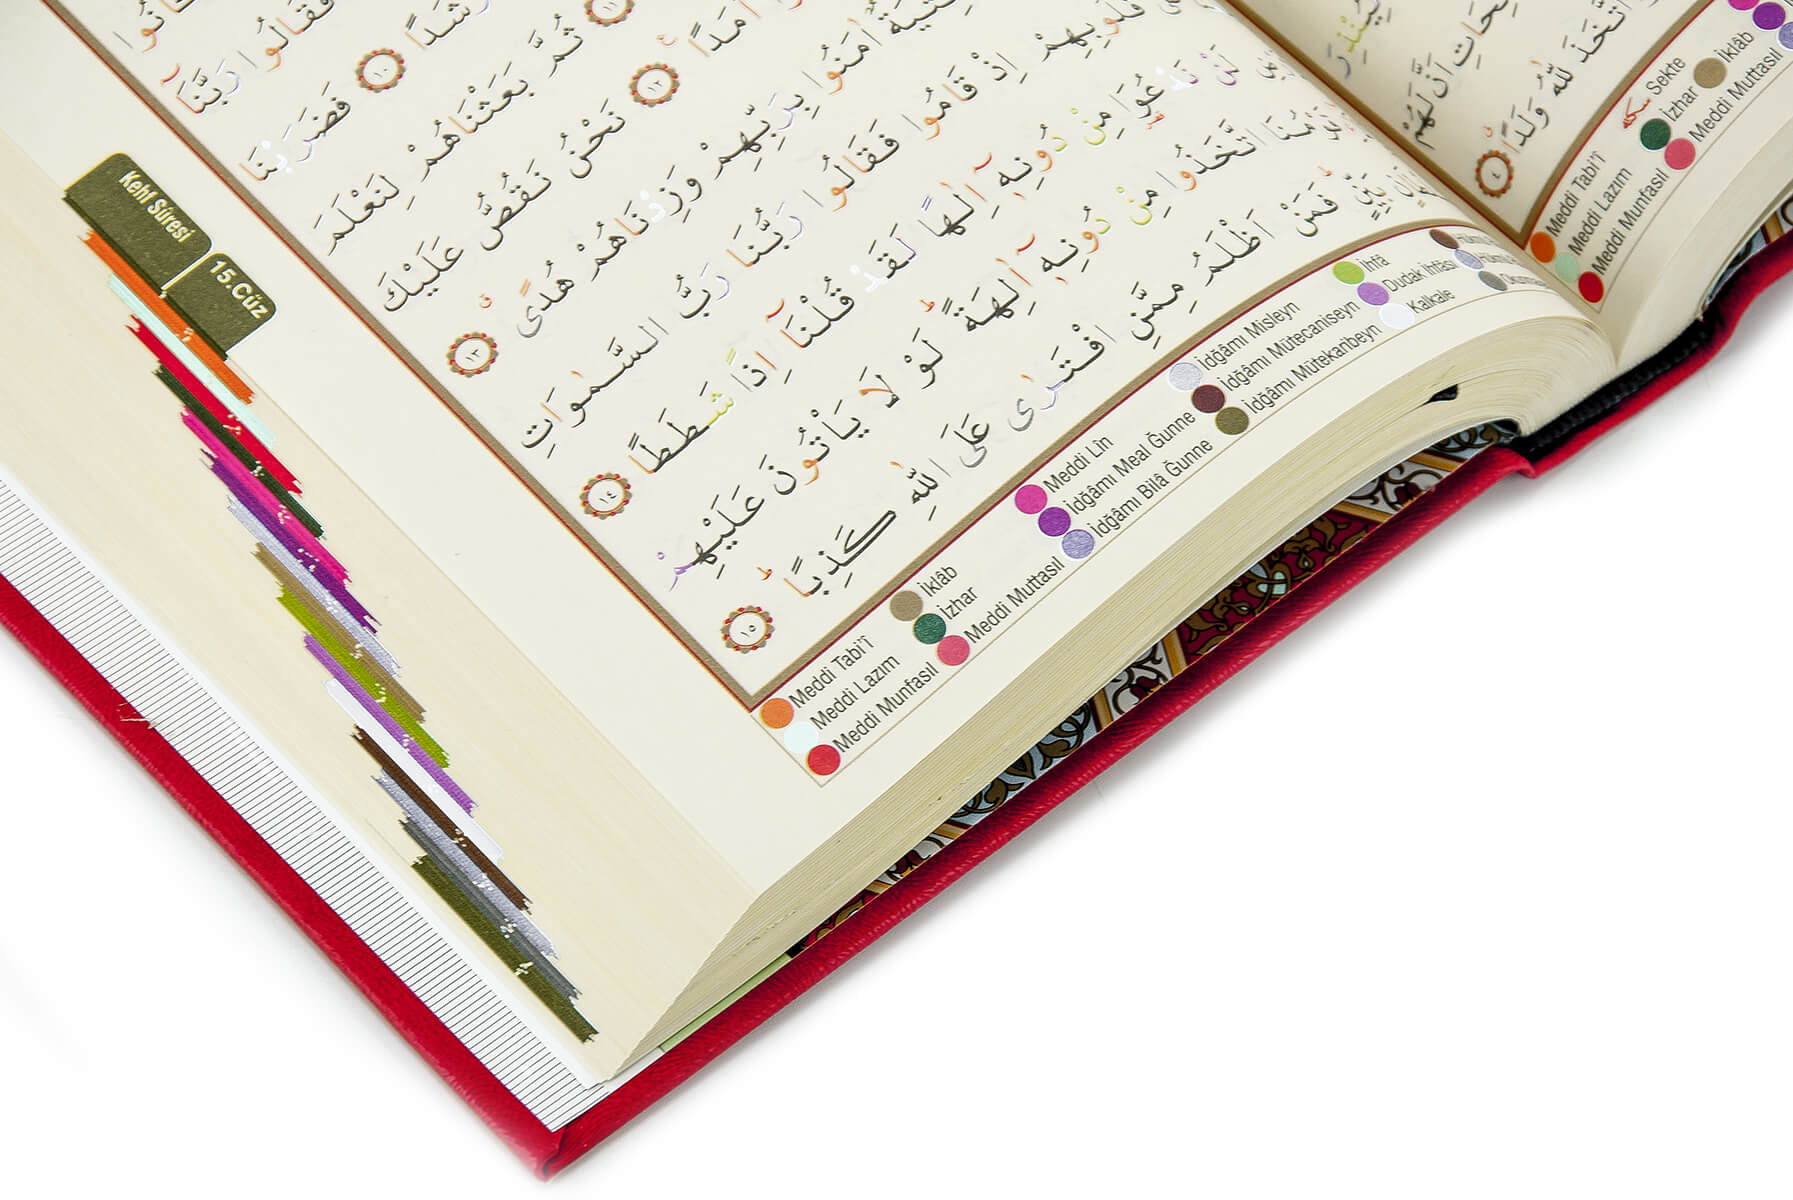 رَبَّنَا
فَقَالُوا
رَبَّنَا
فَضَرَبْنَا
١٠
ثُمَّ بَعَثْنَاهُمْ لِنَعْلَمَ
اَمَدًا
١٢
نَحْنُ نَقُصُّ عَلَيْكَ
اٰمَنُوا بِرَبِّهِمْ وَزِدْنَاهُمْ هُدًى
١٣
قُلُوبِهِمْ اِذْ قَامُوا فَقَالُوا رَبُّنَا رَبُّ السَّمٰوَاتِ
لَنْ نَدْعُوَا مِنْ دُونِهٖٓ اِلٰهًا لَقَدْ قُلْنَٓا اِذًا شَطَطًا
١٤
اتَّخَذُوا مِنْ دُونِهٖٓ اٰلِهَةً لَوْلَا يَأْتُونَ عَلَيْهِمْ
بَيِّنٍ فَمَنْ اَظْلَمُ مِمَّنِ افْتَرٰى عَلَى اللّٰهِ كَذِبًا
١٥
Kehf Sûresi
15.Cüz
Meddi Tabi'î
Meddi Lazım
Meddi Munfasıl
İklâb
İzhar
Meddi Muttasıl
Meddi Lîn
İdğâmı Meal Ğunne
İdğâmı Bilâ Ğunne
İdğâmı Misleyn
İdğâmı Mütecaniseyn
İdğâmı Mütekaribeyn
İhfâ
Dudak İhfâsı
Kalkale
اَنَّ لَهُمْ
اتَّخَذَ اللّٰهُ وَلَدًا
٤
Meddi Tabi'î
Meddi Lazım
Meddi Munfasıl
سكته Sekte
İzhar
İklâb
Meddi Muttasıl